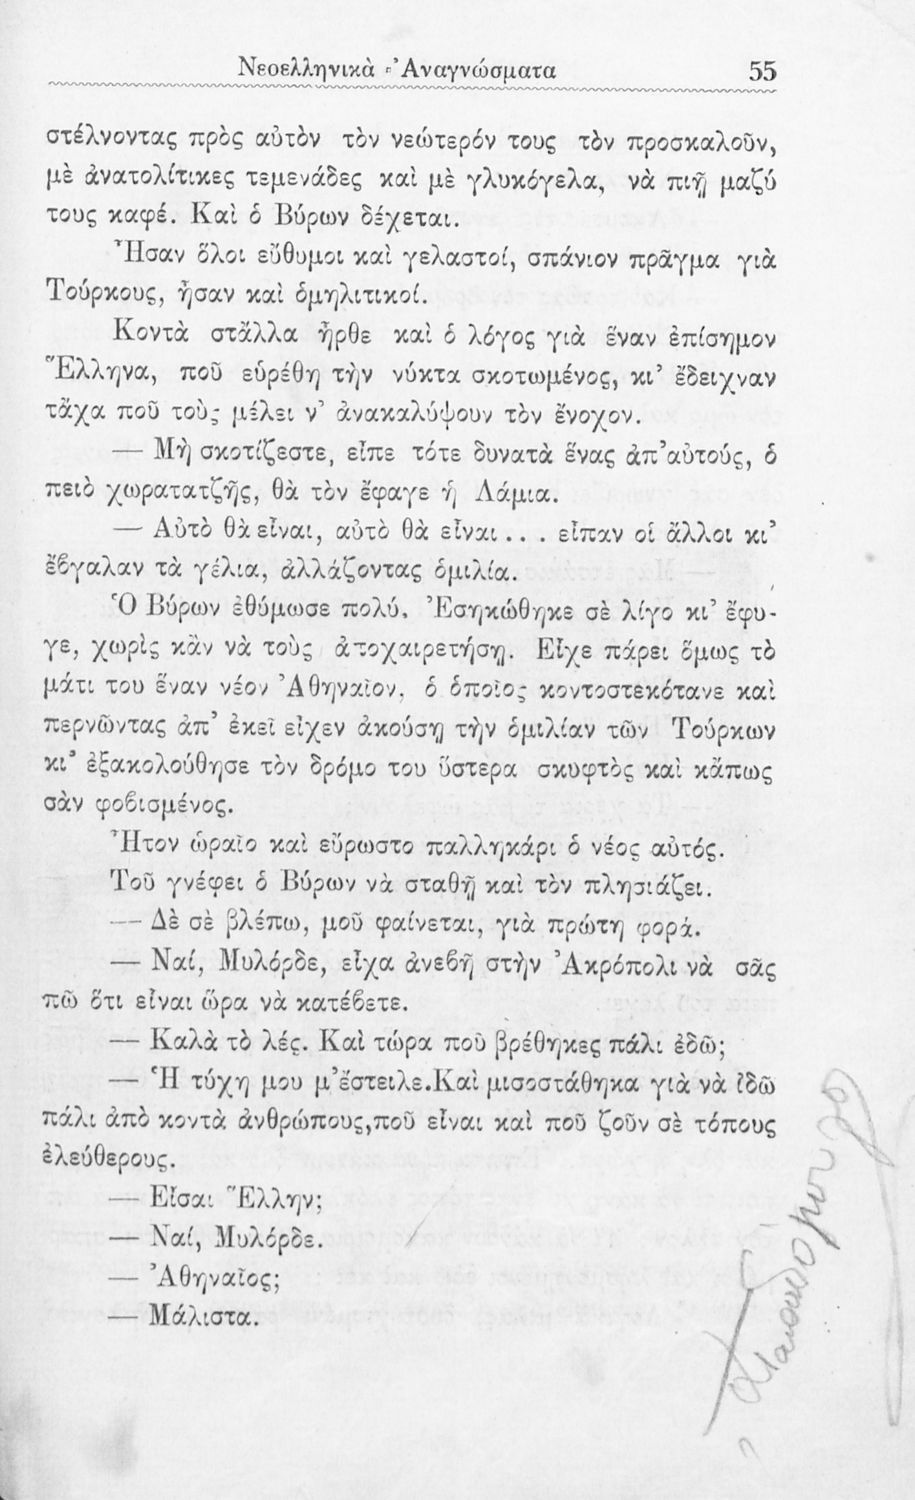 Νεοελληνικὰ Ἀναγνώσματα 55
στέλνοντας πρὸς αὐτὸν τὸν νεώτερόν τους τὸν προσκαλοῦν,
μὲ ἀνατολίτικες τεμενάδες καὶ μὲ γλυκόγελα, νὰ πιῇ μαζύ
τους καφέ. Καὶ ὁ Βύρων δέχεται.
Ἦσαν ὅλοι εὔθυμοι καὶ γελαστοί, σπάνιον πρᾶγμα γιὰ
Τούρκους, ἦσαν καὶ ὁμηλιτικοί.
Κοντὰ στἄλλα ἦρθε καὶ ὁ λόγος γιὰ ἕναν ἐπίσημον
Ἕλληνα, ποῦ εὑρέθη τὴν νύκτα σκοτωμένος, κι’ ἔδειχναν
τἄχα ποῦ τοὺς μέλει ν’ ἀνακαλύψουν τὸν ἔνοχον.
— Μὴ σκοτίζεστε, εἶπε τότε δυνατὰ ἕνας ἀπ’αὐτούς, ὁ
πειὸ χωρατατζῆς, θὰ τὸν ἔφαγε ἡ Λάμια.
— Αὐτὸ θὰ εἶναι, αὐτὸ θὰ εἶναι... . εἶπαν οἱ ἄλλοι κι’
ἔβγαλαν τὰ γέλια, ἀλλάζοντας ὁμιλία.
Ὁ Βύρων ἐθύμωσε πολύ. Ἐσηκώθηκε σὲ λίγο κι’ ἔφυ-
γε, χωρὶς κἂν νὰ τοὺς ἀποχαιρετήσῃ. Εἶχε πάρει ὅμως τὸ
μάτι του ἕναν νέον Ἀθηναῖον, ὁ ὁποῖος κοντοστεκότανε καὶ
περνῶντας ἀπ’ ἐκεῖ εἶχεν ἀκούσῃ τὴν ὁμιλίαν τῶν Τούρκων
κι’ ἐξακολούθησε τὸν δρόμο του ὕστερα σκυφτὸς καὶ κἄπως
σὰν φοβισμένος.
Ἦτον ὡραῖο καὶ εὔρωστο παλληκάρι ὁ νέος αὐτός.
Τοῦ γνέφει ὁ Βύρων νὰ σταθῇ καὶ τὸν πλησιάζει.
— Δὲ σὲ βλέπω, μοῦ φαίνεται, γιὰ πρώτη φορά.
— Ναί, Μυλόρδε, εἶχα ἀνεβῆ στὴν Ἀκρόπολι νὰ σᾶς
πῶ ὅτι εἶναι ὥρα νὰ κατέβετε.
— Καλὰ τὸ λές. Καὶ τώρα ποὺ βρέθηκες πάλι ἐδῶ;
— Ἡ τύχη μου μ’ἔστειλε.Καὶ μισοστάθηκα γιὰ νὰ ἰδῶ
πάλι ἀπὸ κοντὰ ἀνθρώπους,ποῦ εἶναι καὶ ποῦ ζοῦν σὲ τόπους
ἐλεύθερους.
— Εἶσαι Ἕλλην;
— Ναί, Μυλόρδε.
— Ἀθηναῖος;
— Μάλιστα.